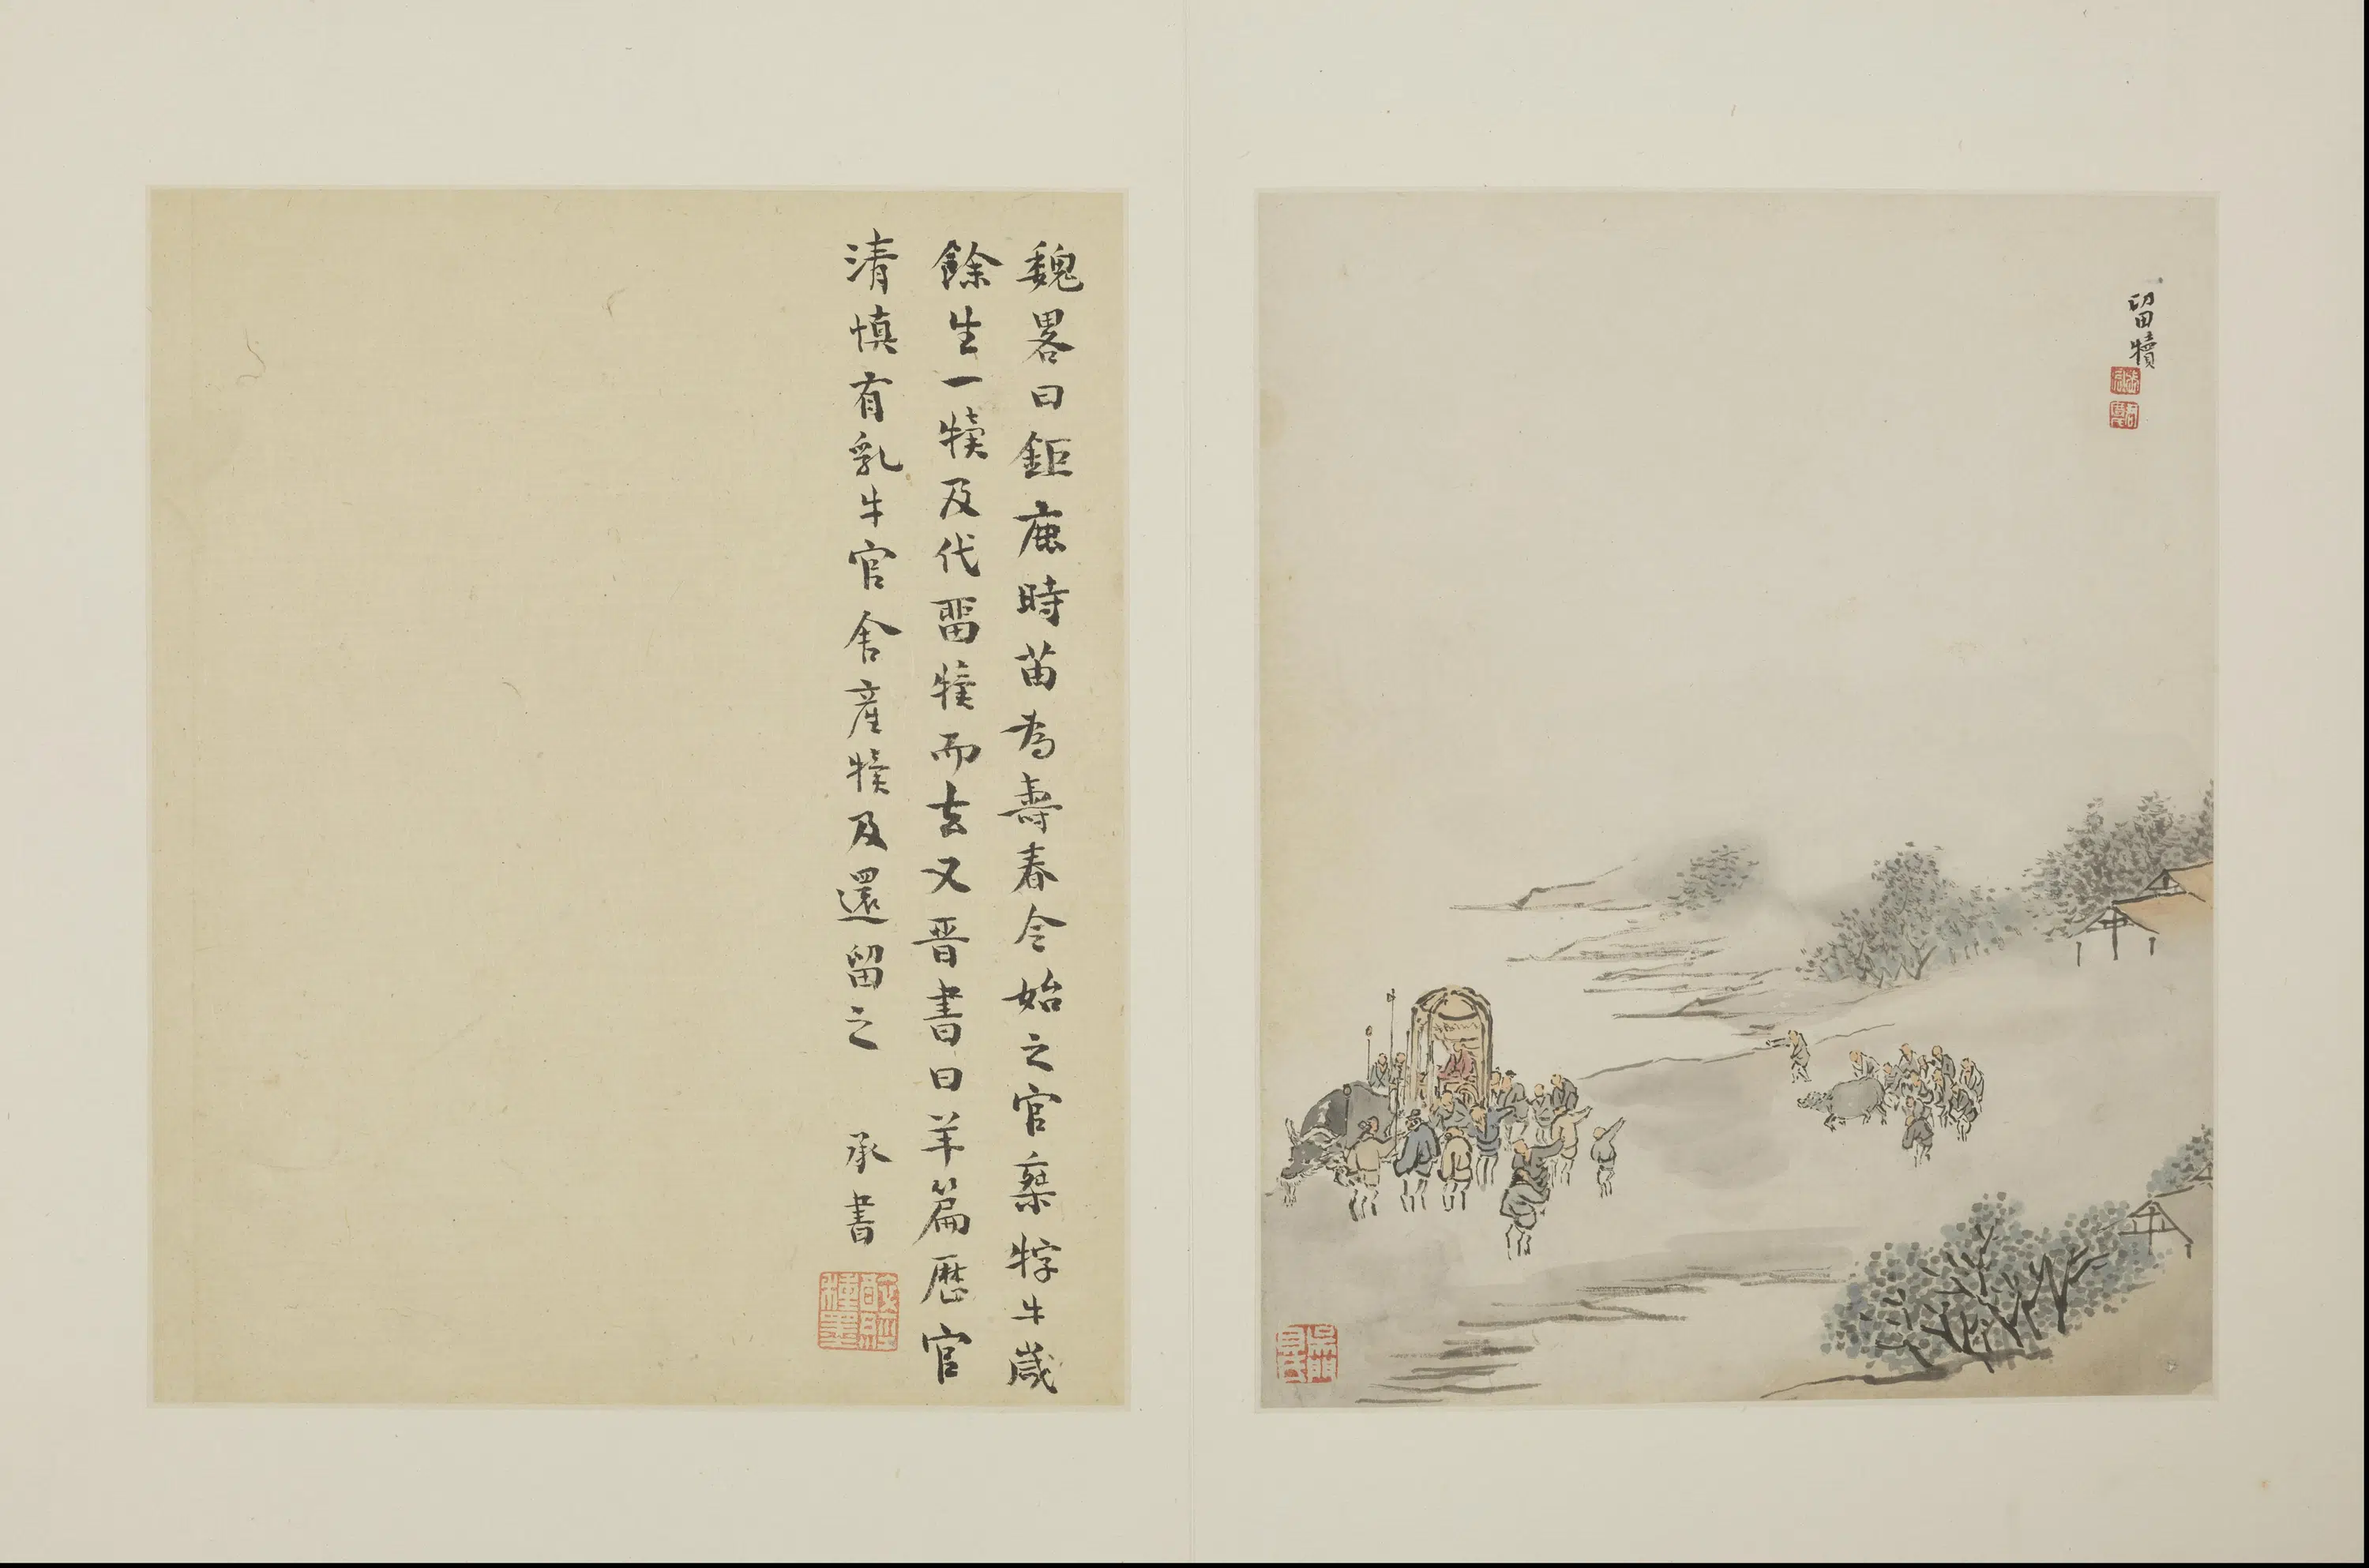 留犢
魏畧曰鉅鹿時苗為壽春令始之官椉牸牛歲
餘生一犢及代畱犢而去又晋書曰羊篇歷官
清慎有乳牛官舍產犢及還留之 承書